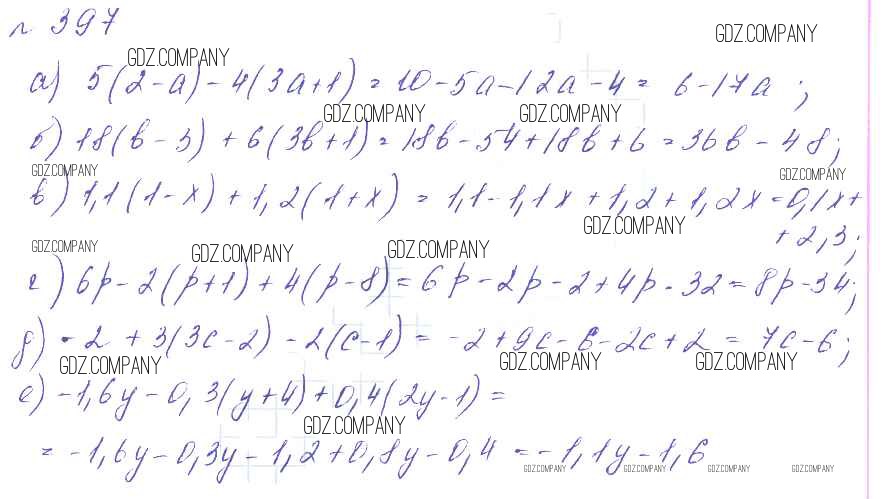 № 397
GDZ.COMPANY
GDZ.COMPANY
а) 5(2-а)-4(3а+1) = 10-5а-12а-4 = 6-17а;
GDZ.COMPANY GDZ.COMPANY
б) 18(в-3)+6(3в+1) = 18в-54+18в+6 = 36в-48;
GDZ.COMPANY GDZ.COMPANY
в) 1,1(1-х)+1,2(1+х) = 1,1-1,1х+1,2+1,2х = 0,1х+
GDZ.COMPANY
+2,3;
GDZ.COMPANY GDZ.COMPANY GDZ.COMPANY
г) 6р-2(р+1)+4(р-8) = 6р-2р-2+4р-32 = 8р-34;
д) -2+3(3с-2)-2(с-1) = -2+9с-6-2с+2 = 7с-6;
GDZ.COMPANY GDZ.COMPANY GDZ.COMPANY
е) -1,6у-0,3(у+4)+0,4(2у-1) =
GDZ.COMPANY
= -1,6у-0,3у-1,2+0,8у-0,4 = -1,1у-1,6
GDZ.COMPANY GDZ.COMPANY GDZ.COMPANY GDZ.COMPANY